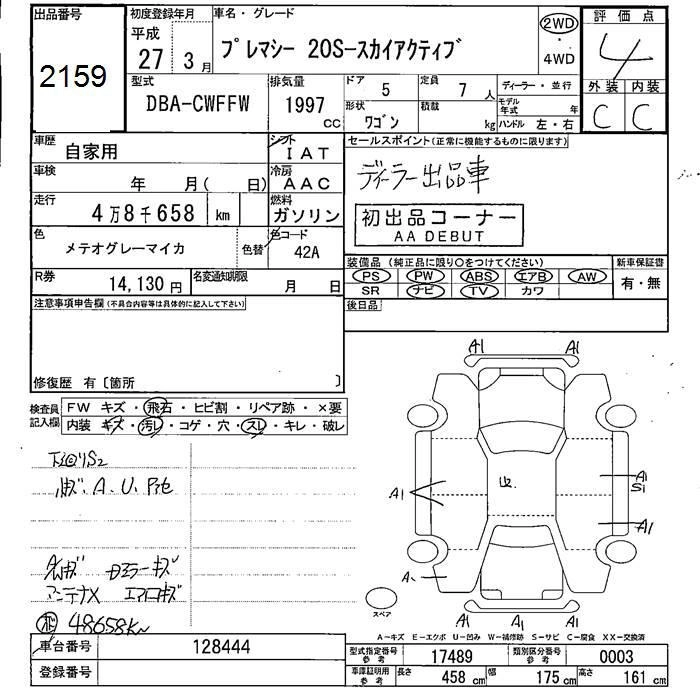 出品番号
2159
初度登録年月
平成
27 3月
車名・グレード
プレマシー 20S-スカイアクティブ
2WD
・
4WD
評価点
4
外装 内装
C C
型式
DBA-CWFFW
排気量
1997
CC
ドア
5
定員
7 人
ディーラー・並行
形状
ワゴン
積載
kg
モデル年式
年
ハンドル 左・右
車歴
自家用
シフト
IAT
セールスポイント(正常に機能するものに限ります)
ディーラー出品車
車検
年 月( 日)
冷房
AAC
走行
4万8千658 km
燃料
ガソリン
初出品コーナー
AA DEBUT
色
メテオグレーマイカ
色替
色コード
42A
装備品(純正品に限り○をつけてください)
PS PW ABS エアB AW
SR ナビ TV カワ
新車保証書
有・無
R券
14,130 円
名変通知期限
月 日
後日品
注意事項申告欄(不具合内容等は具体的に記入して下さい)
修復歴 有〔箇所 〕
検査員記入欄
FW キズ・飛石・ヒビ割・リペア跡・×要
内装 キズ・汚レ・コゲ・穴・スレ・キレ・破レ
A1 A1
A1
A1
S1
A1
A1 A1 A1
スペア
A.U.
ミラーキズ
アンテナX エアロキズ
48658Km
A-キズ E-エクボ U-凹み W-補修跡 S-サビ C-腐食 XX-交換済
車台番号
128444
登録番号
型式指定番号
参考
17489
類別区分番号
参考
0003
車庫証明用
参考
長さ
458 cm
幅
175 cm
高さ
161 cm